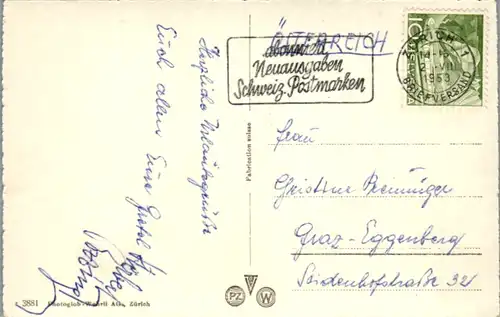 ÖSTERREICH
abonniert
Neuausgaben
Schweiz. Postmarken
ZÜRICH 1
1953
BRIEFVERSAND
10
Herzliche Urlaubsgrüße
Euch allen Eure Gretel
Fabrication suisse
Frau
Christine Preininger
Graz-Eggenberg
Seidenhofstraße 32
PZ
W
3881 Photoglob-Wehrli AG., Zürich